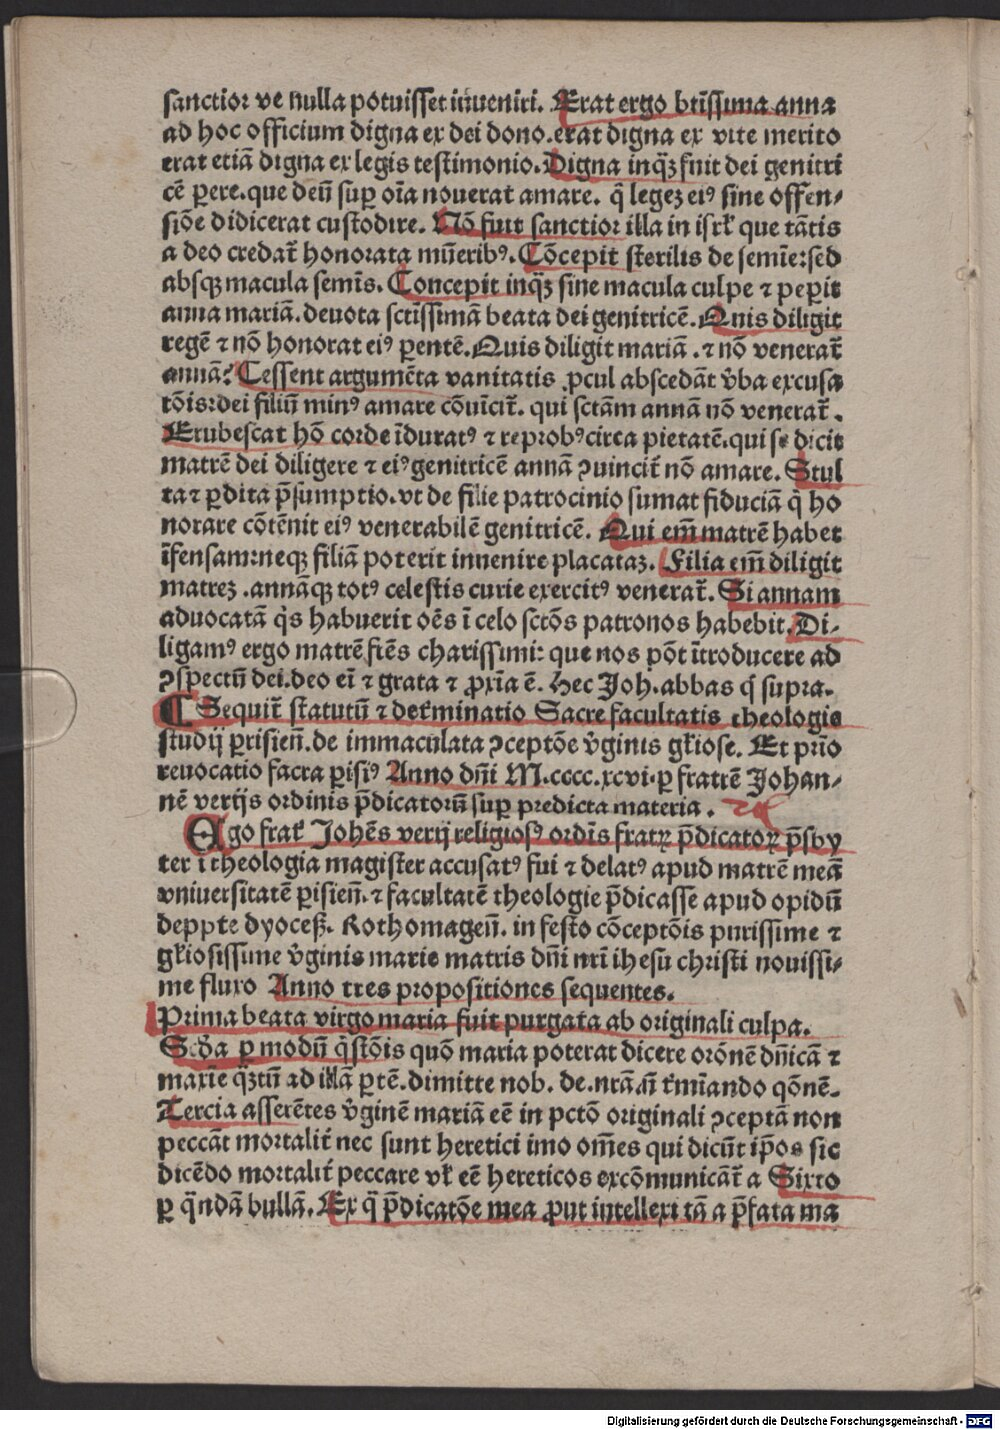 sanctior ve nulla potuisset inveniri. Erat ergo btissima anna
ad hoc officium digna ex dei dono. erat digna ex vite merito
erat etiā digna ex legis testimonio. Digna inqꝫ fuit dei genitri
cē ꝑere. que deū suꝑ oīa nouerat amare. q̄ legeꝫ eiꝰ sine offen⸗
siōe didicerat custodire. Nō fuit sanctior illa in isrł que tātis
a deo credat̄ honorata mūeribꝰ. Cōcepit sterilis de semīe: sed
absqꝫ macula semīs. Concepit inqꝫ sine macula culpe ⁊ peperit
anna mariā. deuota sctissimā beata dei genitricē. Quis diligit
regē ⁊ nō honorat eiꝰ ꝑentē. Quis diligit mariā. ⁊ nō venerat̄
annā? Cessent argumēta vanitatis ꝓcul abscedāt v̄ba excusa
tōis: dei filiū minꝰ amare cōuīcit̄. qui sctām annā nō venerat̄.
Erubescat hō corde īduratꝰ ⁊ reprobꝰ circa pietatē. qui se dicit
matrē dei diligere ⁊ eiꝰ genitricē annā ꝯuincit̄ nō amare. Stul
ta ⁊ ꝑdita p̄sumptio. vt de filie patrocinio sumat fiduciā q̄ ho
norare cōtēnit eiꝰ venerabilē genitricē. Qui em̄ matrē habet
īfensam: neqꝫ filiā poterit inuenire placataꝫ. Filia em̄ diligit
matreꝫ. annāqꝫ totꝰ celestis curie exercitꝰ venerat̄. Si annam
aduocatā q̄s habuerit oēs ī celo sctōs patronos habebit. Di⸗
ligamꝰ ergo matrē fr̄es charissimi: que nos pōt ītroducere ad
ꝯspectū dei. deo eī ⁊ grata ⁊ ꝓxīa ē. Hec Joh. abbas q̄ supra.
¶ Sequit̄ statutū ⁊ determinatio Sacre facultatis theologie
studij ꝑisieñ. de immaculata ꝯceptōe v̄ginis gľiose. Et prīo
reuocatio facta ꝑisiꝰ Anno dn̄i M.cccc.xcvi. ꝑ fratrē Johan⸗
nē verijs ordinis p̄dicatorū suꝑ predicta materia.
Ego frater Johēs verij religiosꝰ ordīs fratꝝ p̄dicatoꝝ p̄sby
ter ī theologia magister accusatꝰ fui ⁊ delatꝰ apud matrē meā
vniuersitatē ꝑisieñ. ⁊ facultatē theologie p̄dicasse apud opidū
deppte dyoceß. Rothomageñ. in festo cōceptōis purissime ⁊
gľiosissime v̄ginis marie matris dn̄i nr̄i ihesu christi nouissi⸗
me fluxo Anno tres propositiones sequentes.
Prima beata virgo maria fuit purgata ab originali culpa.
Scda ꝑ modū q̄stōis quō maria poterat dicere orōnē dn̄icā ⁊
maxīe qꝫtū ad illā ꝑtē. dimitte nob. de. nr̄ā. ñ termīando qōnē.
Tercia asserētes v̄ginē mariā eē in pctō originali ꝯceptā non
peccāt mortalit̄ nec sunt heretici imo om̄es qui dicūt ip̄os sic
dicēdo mortalit̄ peccare vł eē hereticos excōmunicāt̄ a Sixto
ꝑ q̄ndā bullā. Ex q̄ p̄dicatōe mea ꝓut intellexi tā a p̄fata ma
Digitalisierung gefördert durch die Deutsche Forschungsgemeinschaft - DFG